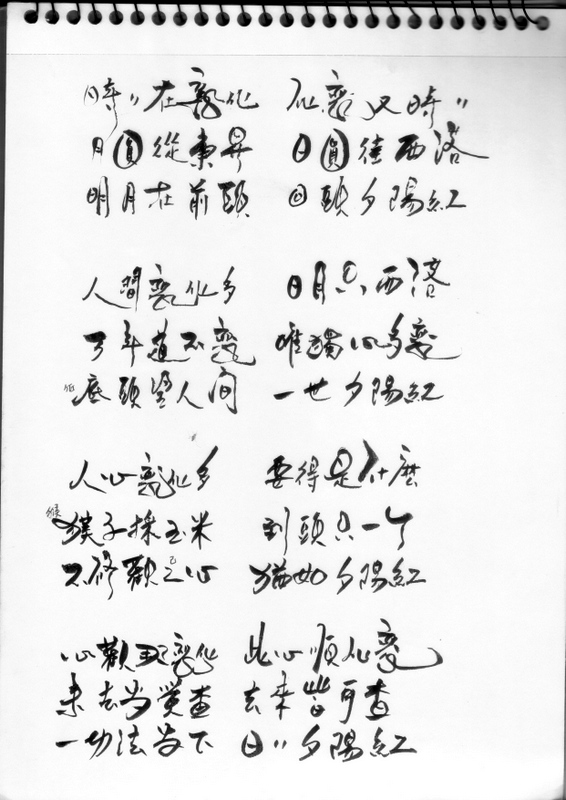 時〃在變化 化變又時〃
月圓從東昇 日圓往西落
明月在前頭 回頭夕陽紅
人間變化多 日月只西落
万年道不變 唯獨心多變
低
底頭望人间 一世夕陽紅
人心變化多 要得是什麼
猴
猴子採玉米 到頭只一个
不修觀己心 猶如夕陽紅
心觀現變化 此心順化變
來去当覺查 去來皆可查
一切法当下 日〃夕陽紅